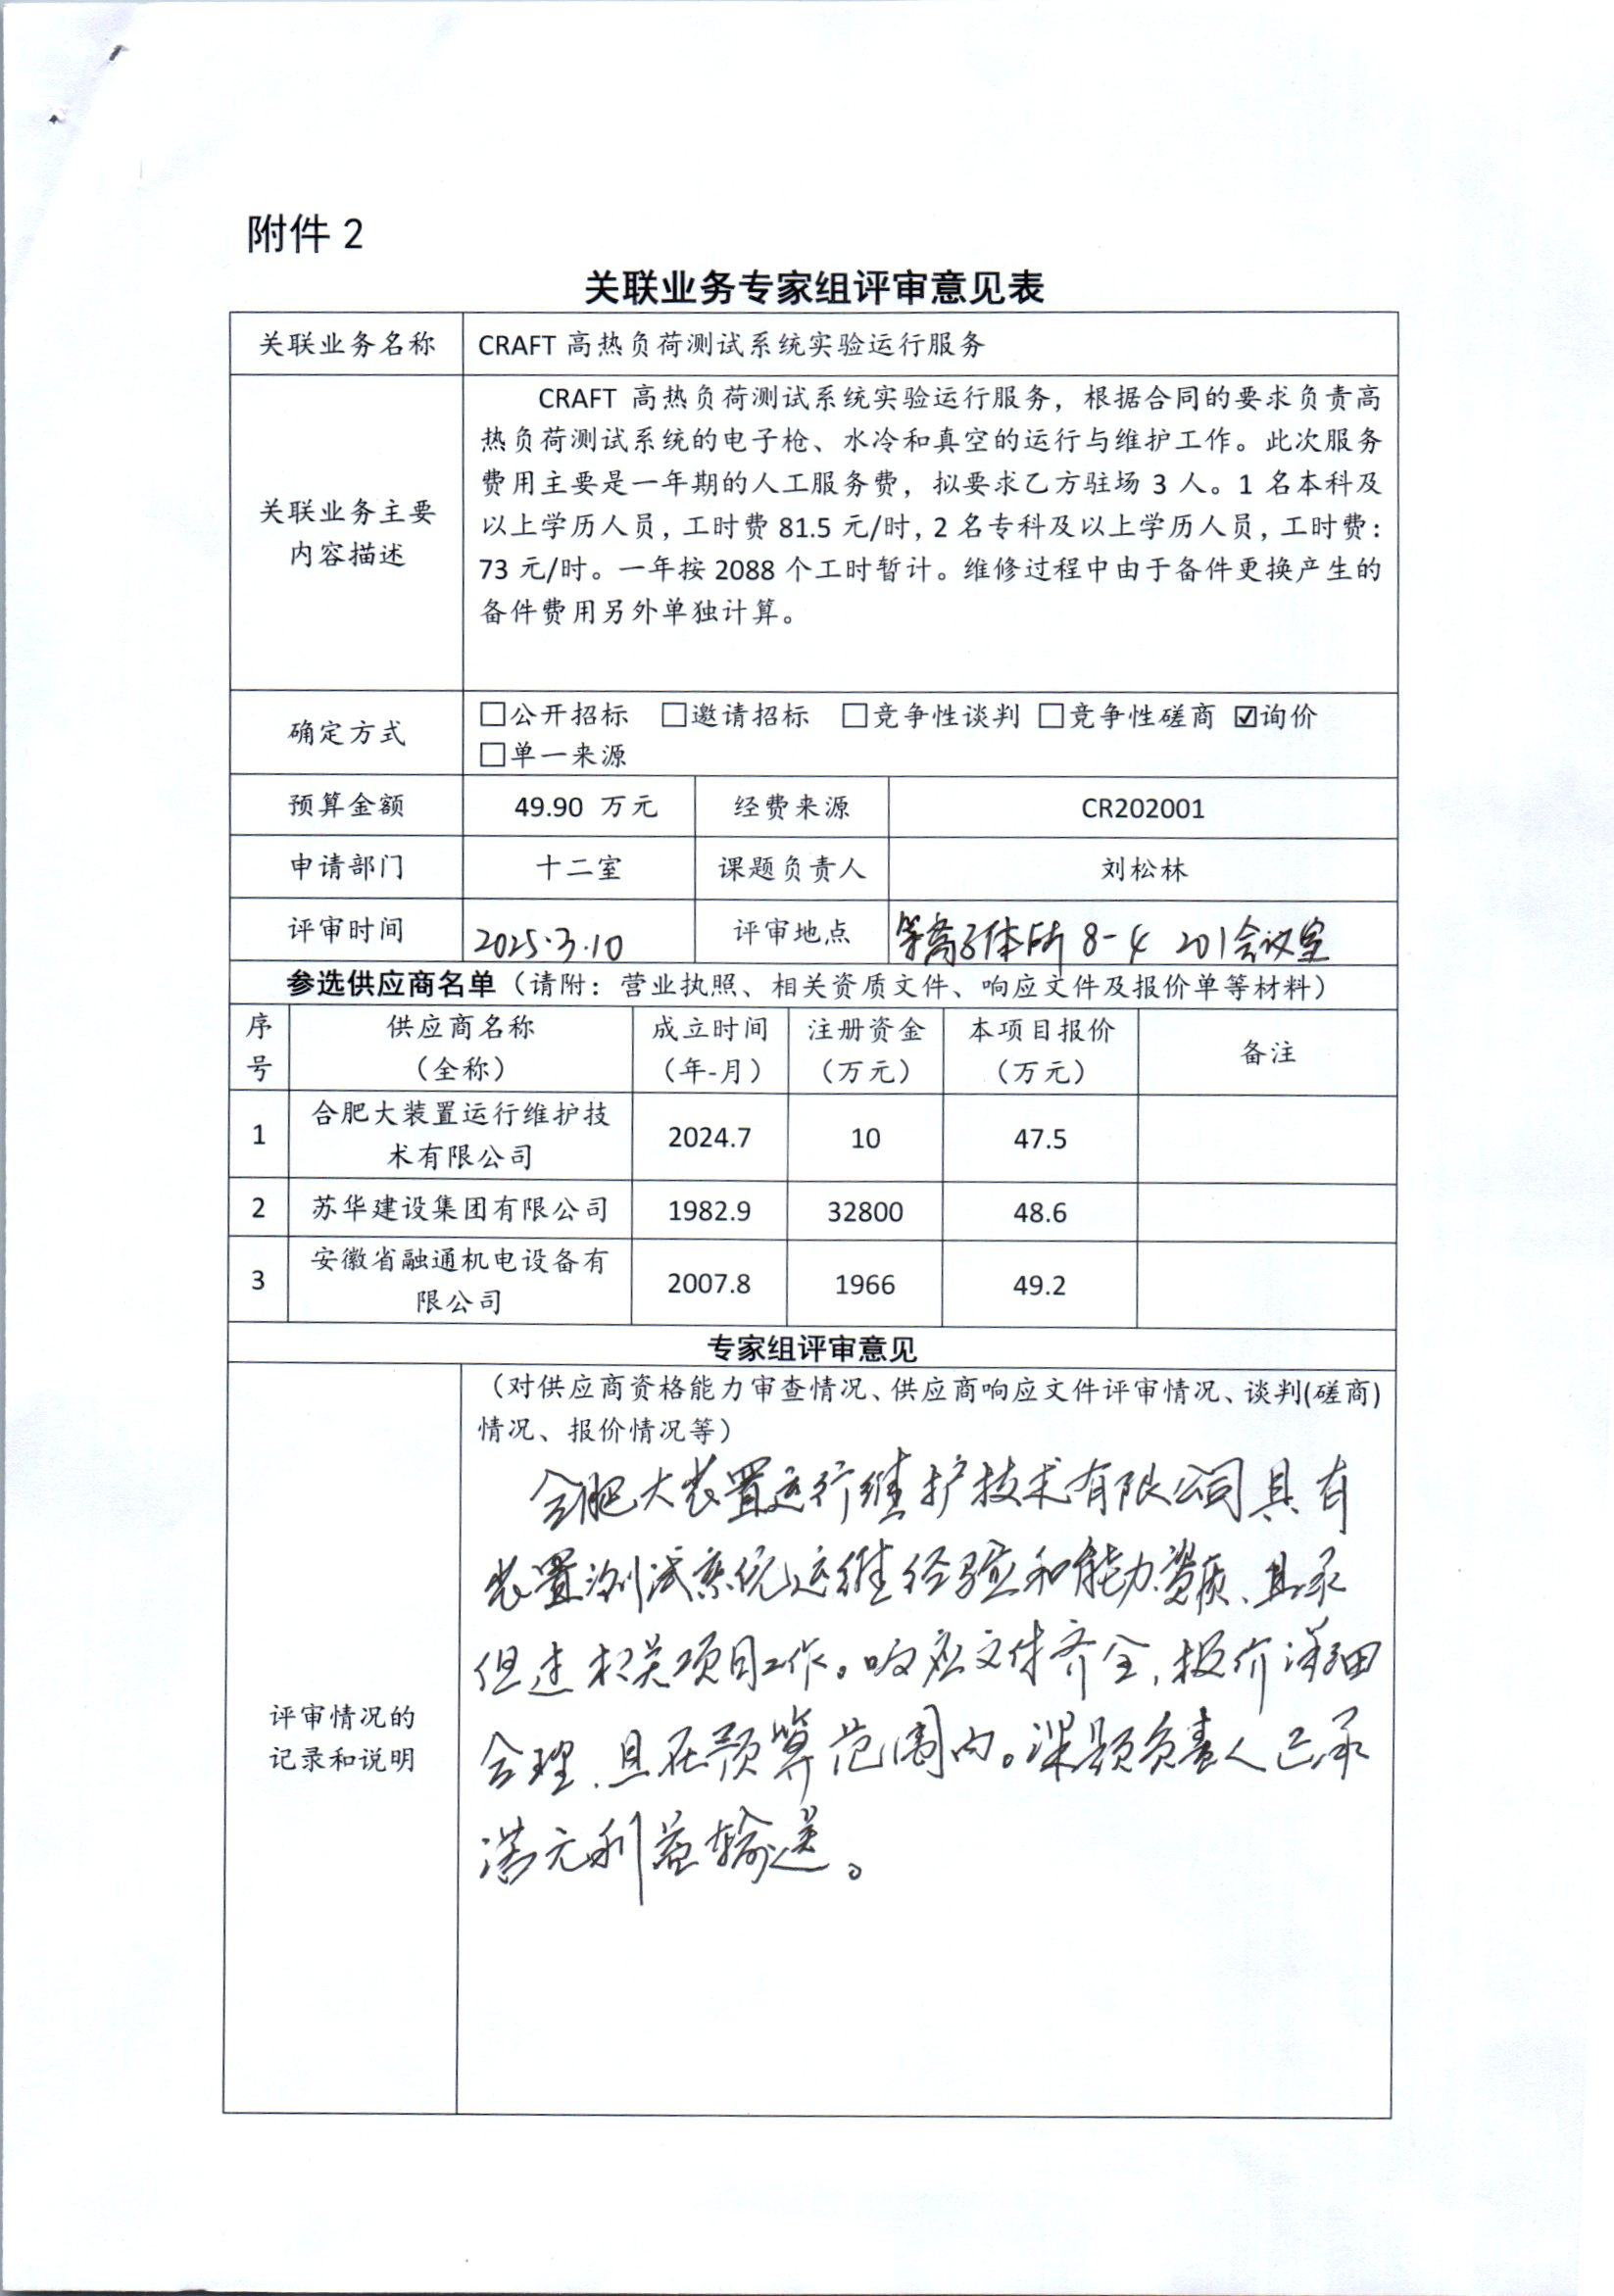 附件 2
关联业务专家组评审意见表
关联业务名称 CRAFT 高热负荷测试系统实验运行服务
关联业务主要
内容描述
CRAFT 高热负荷测试系统实验运行服务，根据合同的要求负责高
热负荷测试系统的电子枪、水冷和真空的运行与维护工作。此次服务
费用主要是一年期的人工服务费，拟要求乙方驻场 3 人。1 名本科及
以上学历人员，工时费 81.5 元/时，2 名专科及以上学历人员，工时费：
73 元/时。一年按 2088 个工时暂计。维修过程中由于备件更换产生的
备件费用另外单独计算。
确定方式
□公开招标 □邀请招标 □竞争性谈判 □竞争性磋商 ☑询价
□单一来源
预算金额 49.90 万元 经费来源 CR202001
申请部门 十二室 课题负责人 刘松林
评审时间 2025.3.10 评审地点 等离子体所 8-4 201会议室
参选供应商名单（请附：营业执照、相关资质文件、响应文件及报价单等材料）
序号 供应商名称（全称） 成立时间（年-月） 注册资金（万元） 本项目报价（万元） 备注
1 合肥大装置运行维护技术有限公司 2024.7 10 47.5
2 苏华建设集团有限公司 1982.9 32800 48.6
3 安徽省融通机电设备有限公司 2007.8 1966 49.2
专家组评审意见
评审情况的
记录和说明
（对供应商资格能力审查情况、供应商响应文件评审情况、谈判(磋商)
情况、报价情况等）
合肥大装置运行维护技术有限公司具有
装置测试系统运维经验和能力资质、且承
但过相关项目工作。响应文件齐全，报价详细
合理，且在预算范围内。课题负责人已承
诺无利益输送。